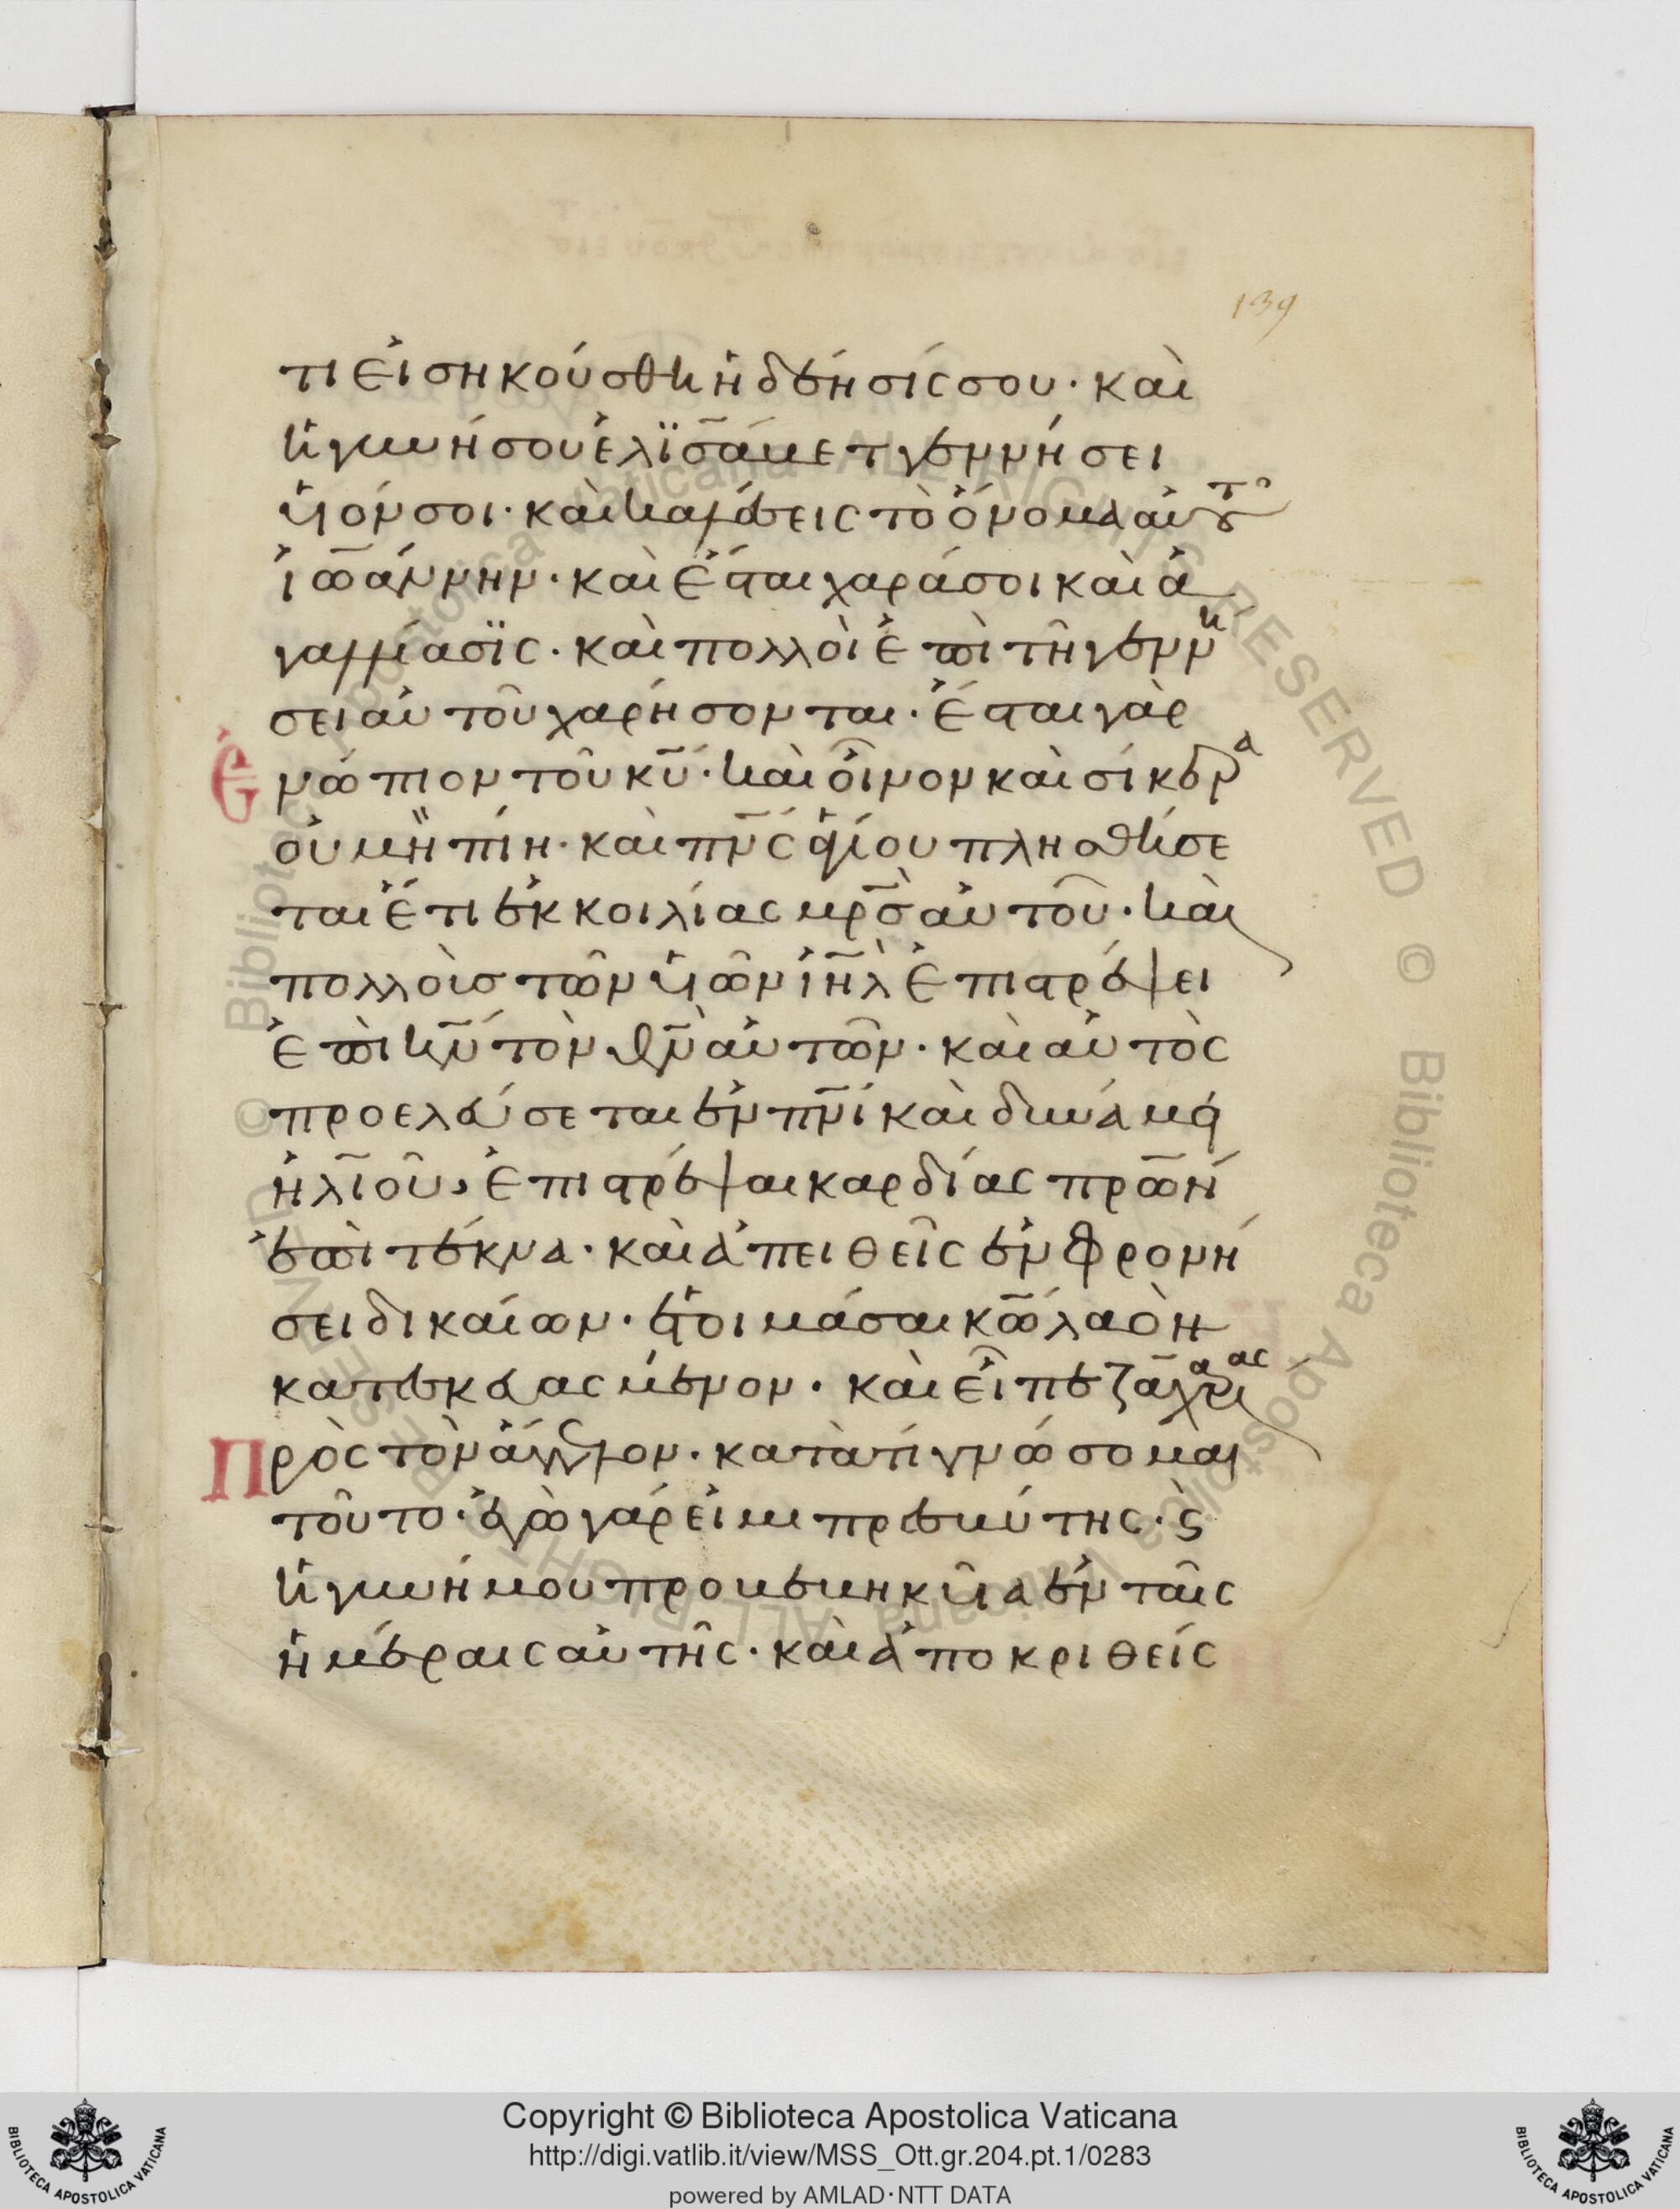 139
τι εἰσηκούσθη ἡ δέησίς σου· καὶ
ἡ γυνή σου ἐλϊσάβετ γεννήσει
υἱόν σοι· καὶ καλέσεις τὸ ὄνομα αὐτοῦ
ἰω̅άννην· καὶ ἔσται χαρά σοι καὶ ἀ
γαλλίασϊς· καὶ πολλοὶ ἐπὶ τῆ γεννή
σει αὐτοῦ χαρήσονται· ἔσται γὰρ
ἐνώπιον τοῦ κ̅υ̅· καὶ οἶνον καὶ σίκερα
οὐ μὴ πίη· καὶ π̅ν̅ς̅ ἁγίου πλησθήσε
ται ἔτι ἐκ κοιλίας μ̅ρ̅ς̅ αὐτοῦ· καὶ
πολλοὺσ τῶν υἱῶν ἰ̅η̅λ̅ ἐπιστρέψει
ἐπὶ κ̅ν̅ τὸν θ̅ν̅ αὐτῶν· καὶ αὐτὸς
προελεύσεται ἐν π̅ν̅ι̅ καὶ δυνάμει
ἡλιοῦ, ἐπιστρέψαι καρδίας π̅ρ̅ω̅ν̅
ἐπὶ τέκνα· καὶ ἀπειθεῖς ἐν φρονή
σει δικαίων· ἑτοιμάσαι κ̅ω̅ λαὸν
κατεσκευασμένον· καὶ εἶπε ζαχαρίας
Πρὸς τὸν ἄγγελον· κατὰ τί γνώσομαι
τοῦτο· ἐγὼ γάρ εἰμι πρεσβύτης· ϗ
ἡ γυνή μου προβεβηκυῖα ἐν ταῖς
ἡμέραις αὐτῆς· καὶ ἀποκριθείς
© Biblioteca Apostolica Vaticana ALL RIGHTS RESERVED
Copyright © Biblioteca Apostolica Vaticana
http://digi.vatlib.it/view/MSS_Ott.gr.204.pt.1/0283
powered by AMLAD·NTT DATA
BIBLIOTECA APOSTOLICA VATICANA
BIBLIOTECA APOSTOLICA VATICANA